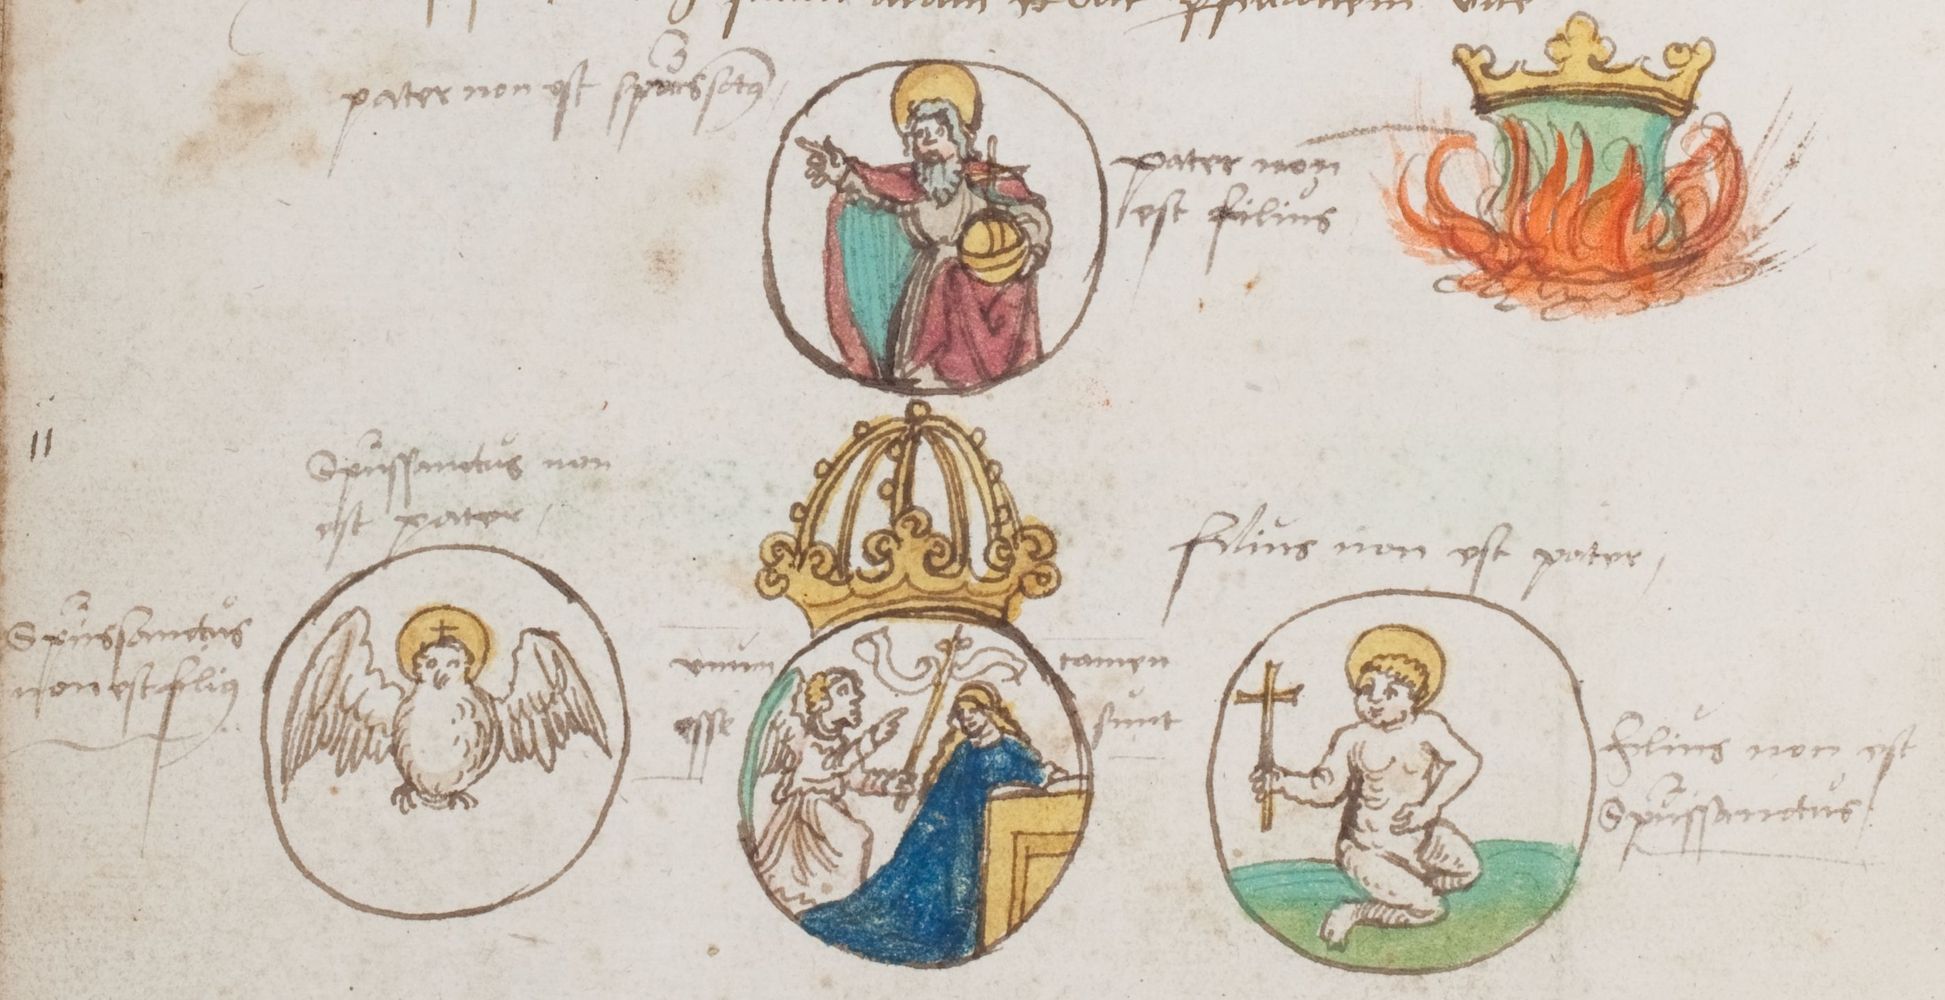 pater non est spũssctꝯ
pater non
est filius
11
Spũssanctus non
est pater
filius non est pater
Spũssanctus
non est filiꝯ
unum
tamen
esse
sunt
filius non est
Spũssanctus